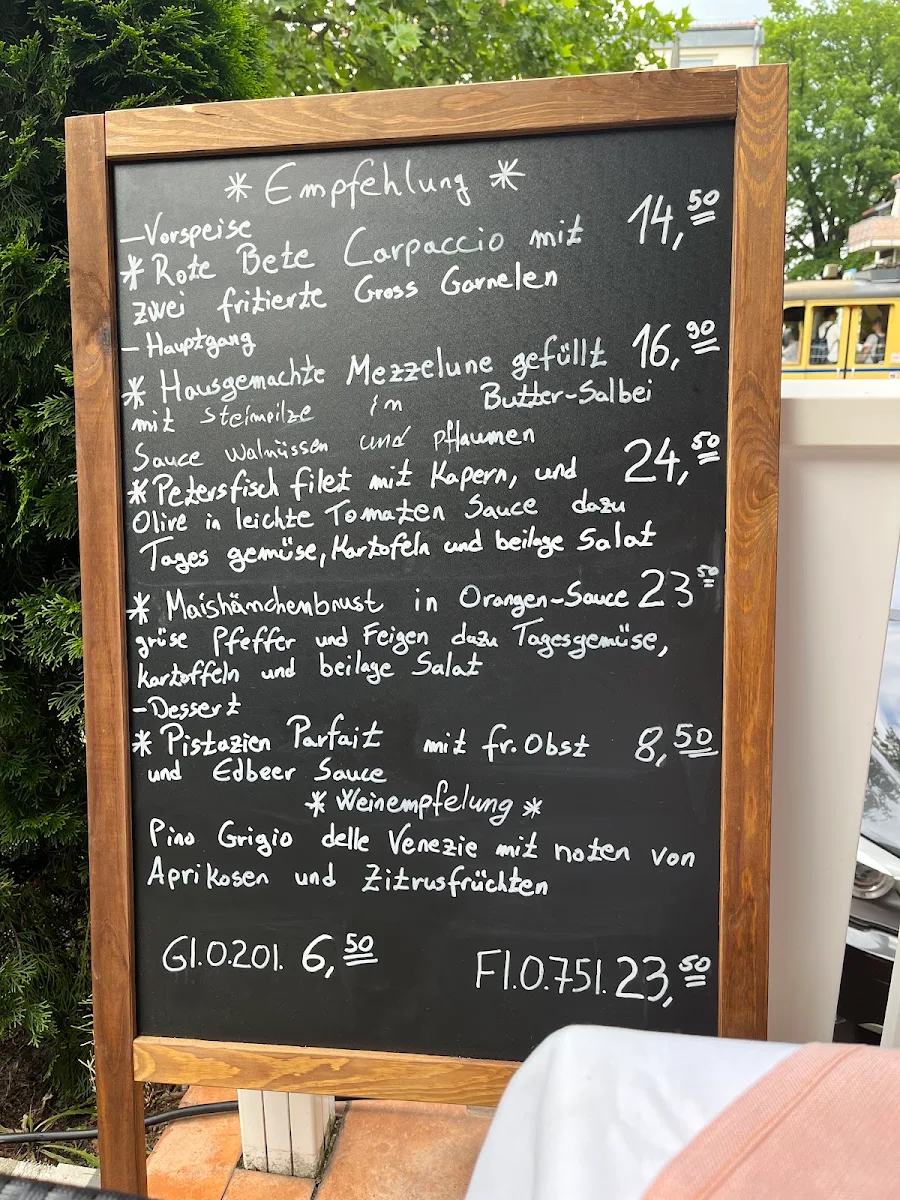 * Empfehlung *
-Vorspeise
* Rote Bete Carpaccio mit 14,50
zwei fritierte Gross Garnelen
- Hauptgang
* Hausgemachte Mezzelune gefüllt 16,90
mit Steinpilze in Butter-Salbei
Sauce Walnüssen und pflaumen
* Petersfisch filet mit Kapern, und 24,50
Olive in leichte Tomaten Sauce dazu
Tages gemüse, Kartofeln und beilage Salat
* Maishämchenbrust in Orangen-Sauce 23 50
grüse Pfeffer und Feigen dazu Tagesgemüse,
kartoffeln und beilage Salat
-Dessert
* Pistazien Parfait mit fr. Obst 8,50
und Edbeer Sauce
* Weinempfelung *
Pino Grigio delle Venezie mit noten von
Aprikosen und Zitrusfrüchten
Gl.0.20l. 6,50 Fl.0.75l. 23,50